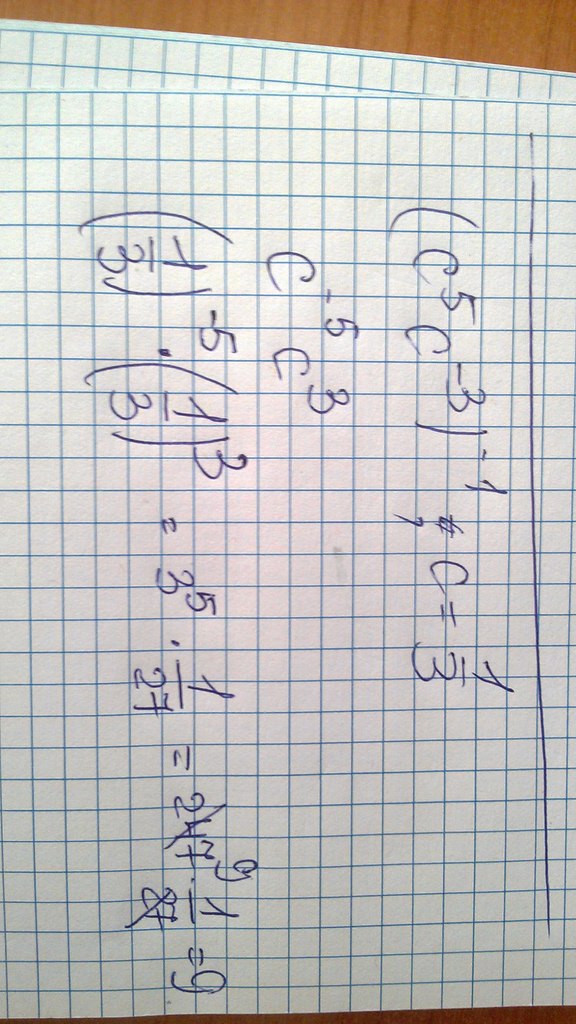 (c⁵c⁻³)⁻¹, c = 1/3
c⁻⁵ c³
(1/3)⁻⁵ · (1/3)³ = 3⁵ · 1/27 = 247 9 · 1/27 = 9